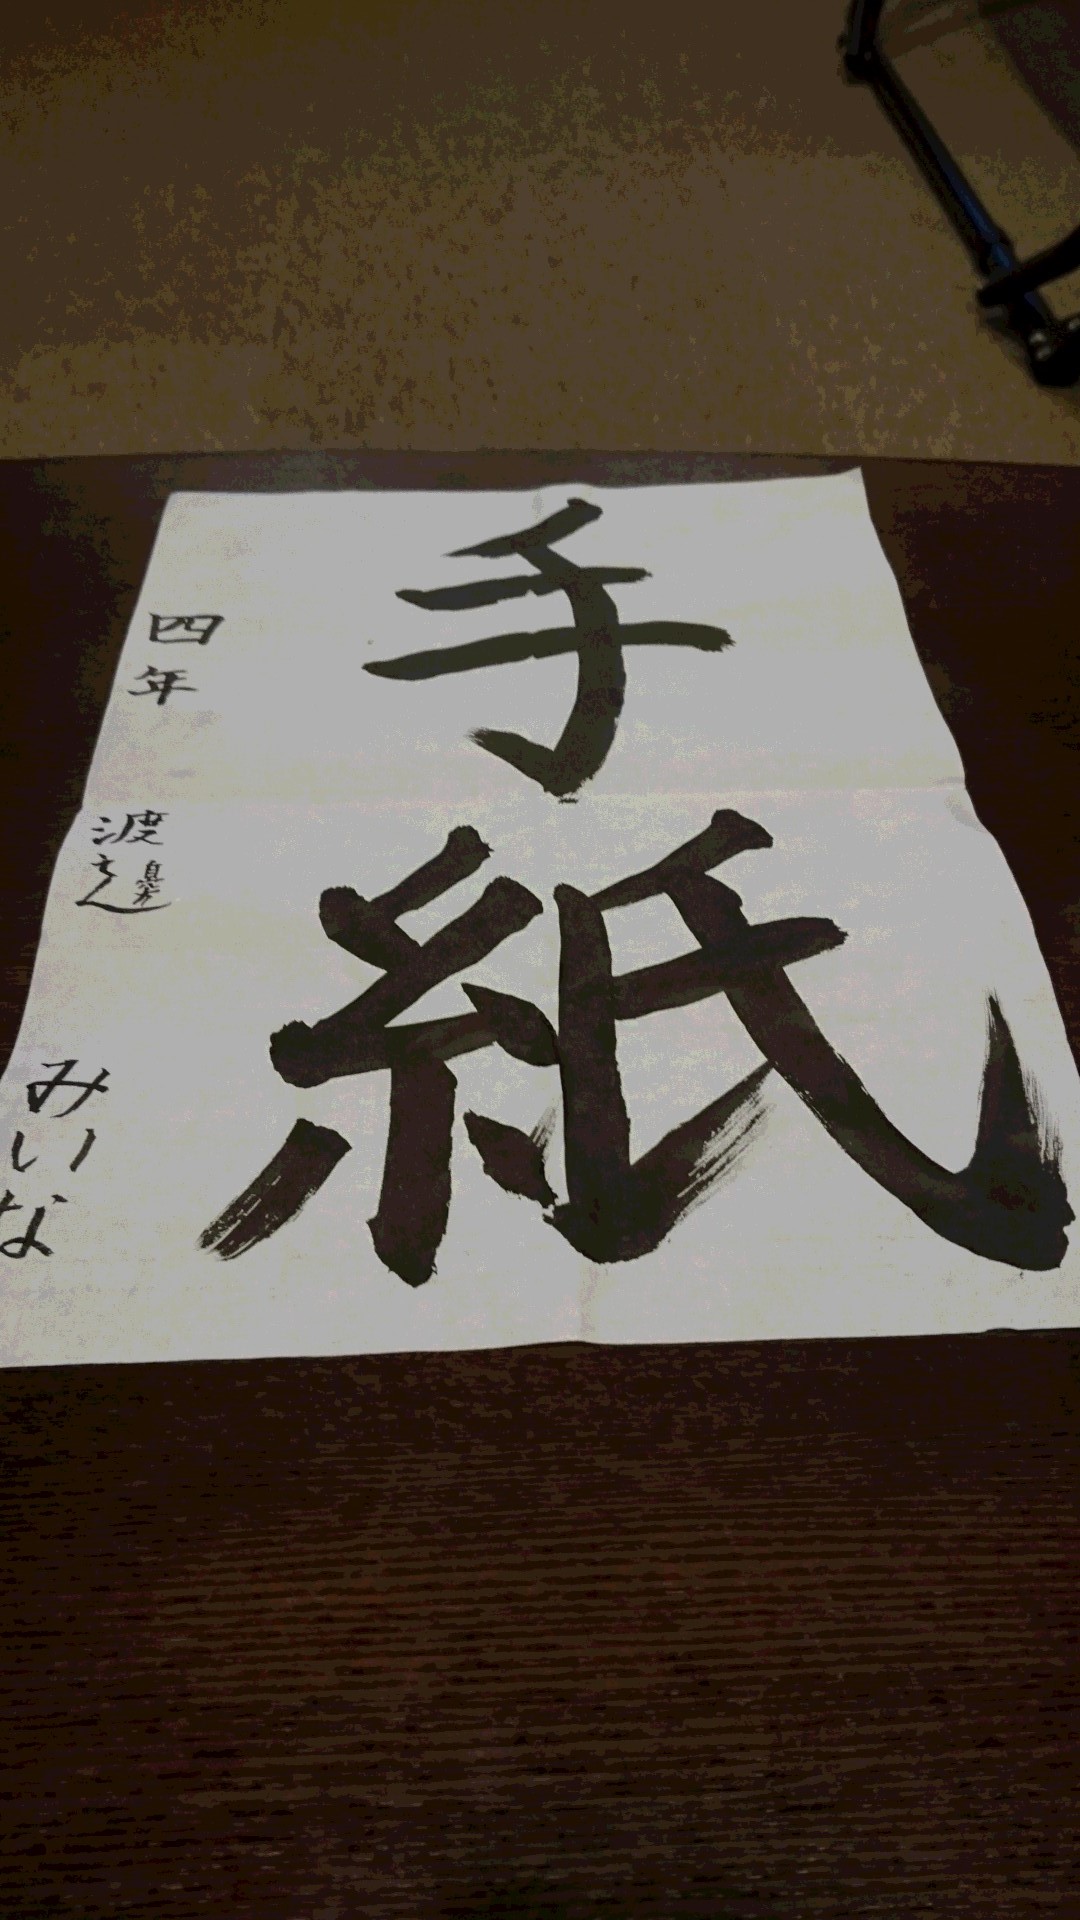 手紙
四年 渡邊 みいな